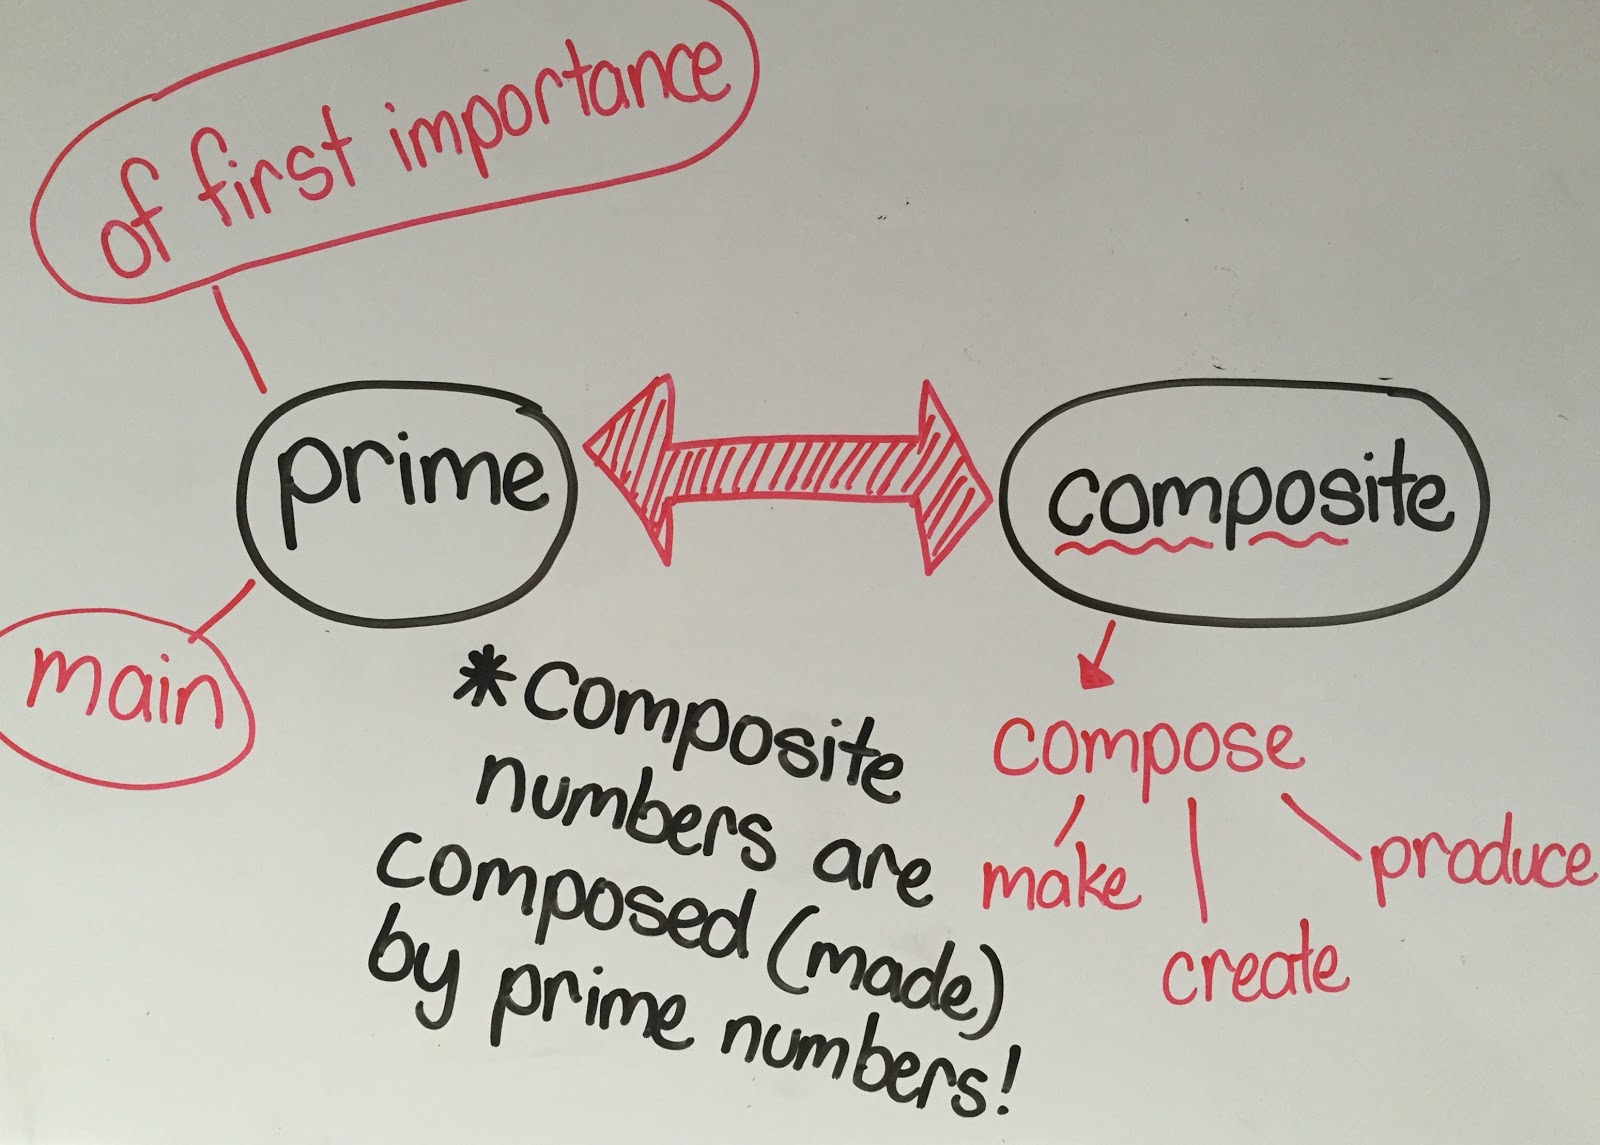 of first importance
prime
composite
main
*Composite
numbers are
composed (made)
by prime numbers!
compose
make
create
produce